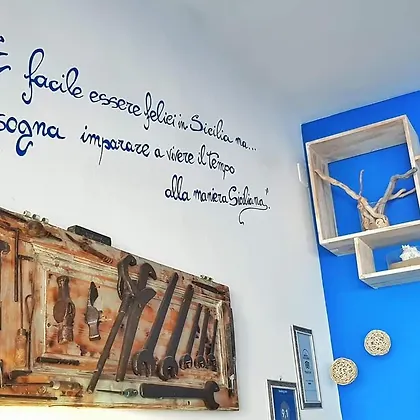 È facile essere felici in Sicilia ma...
sogna imparare a vivere il tempo
alla maniera Siciliana"